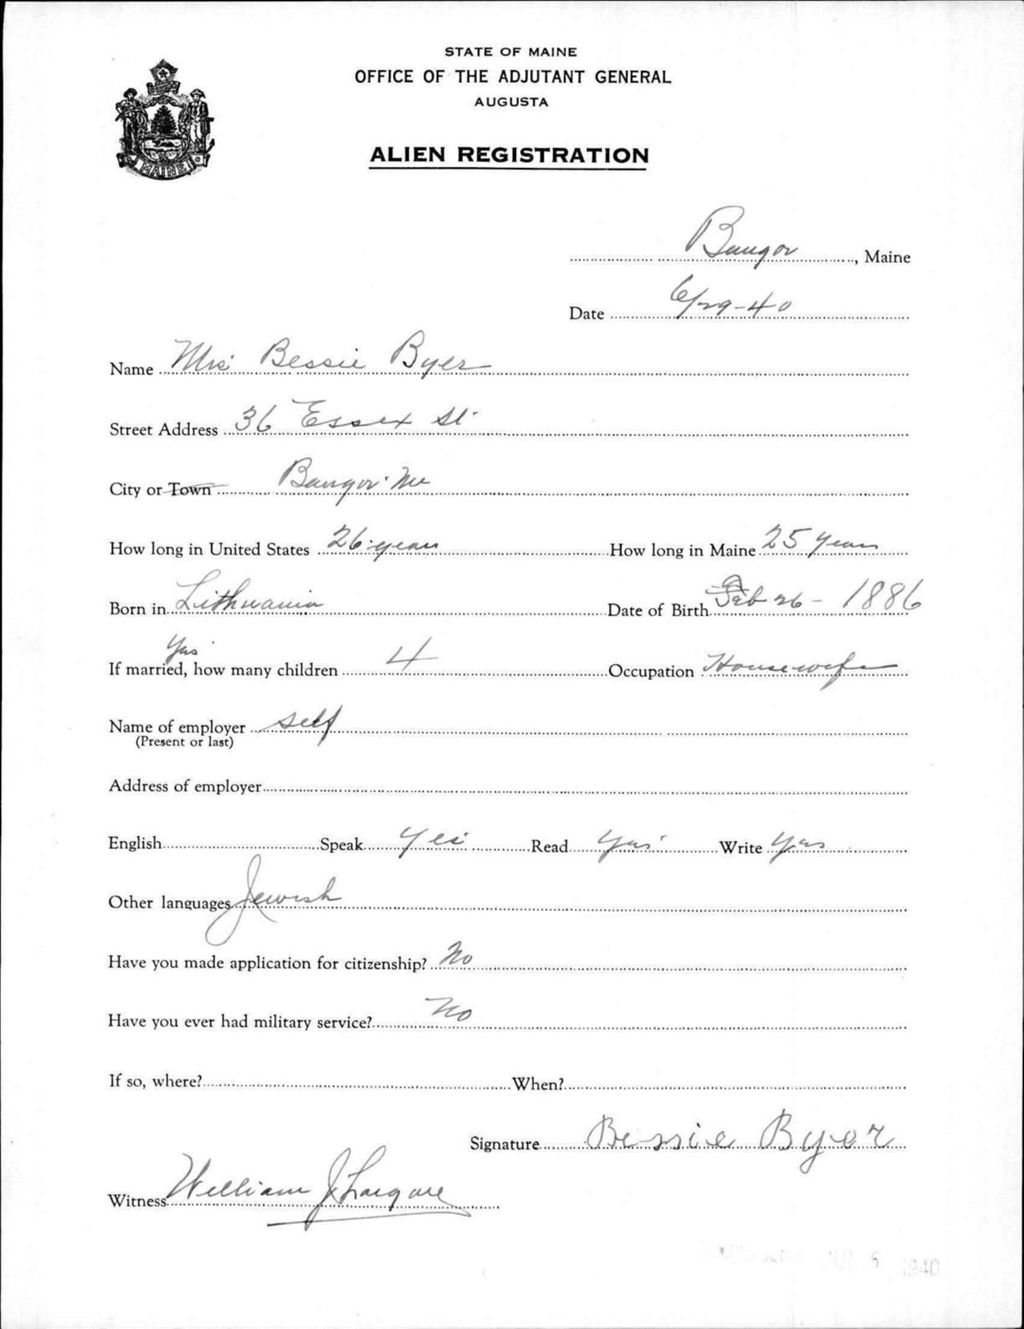 STATE OF MAINE
OFFICE OF THE ADJUTANT GENERAL
AUGUSTA
ALIEN REGISTRATION
MAINE
Bangor, Maine
Date 6/29-40
Name Mrs Bessie Byer
Street Address 36 Essex St.
City or Town Bangor Me
How long in United States 26 years How long in Maine 25 years
Born in Lithuania Date of Birth Feb 26 - 1886
Yes
If married, how many children 4 Occupation Housewife
Name of employer self
(Present or last)
Address of employer
English Speak Yes Read Yes Write Yes
Other languages Jewish
Have you made application for citizenship? No
Have you ever had military service? No
If so, where? When?
Signature Bessie Byer
Witness William J
1940